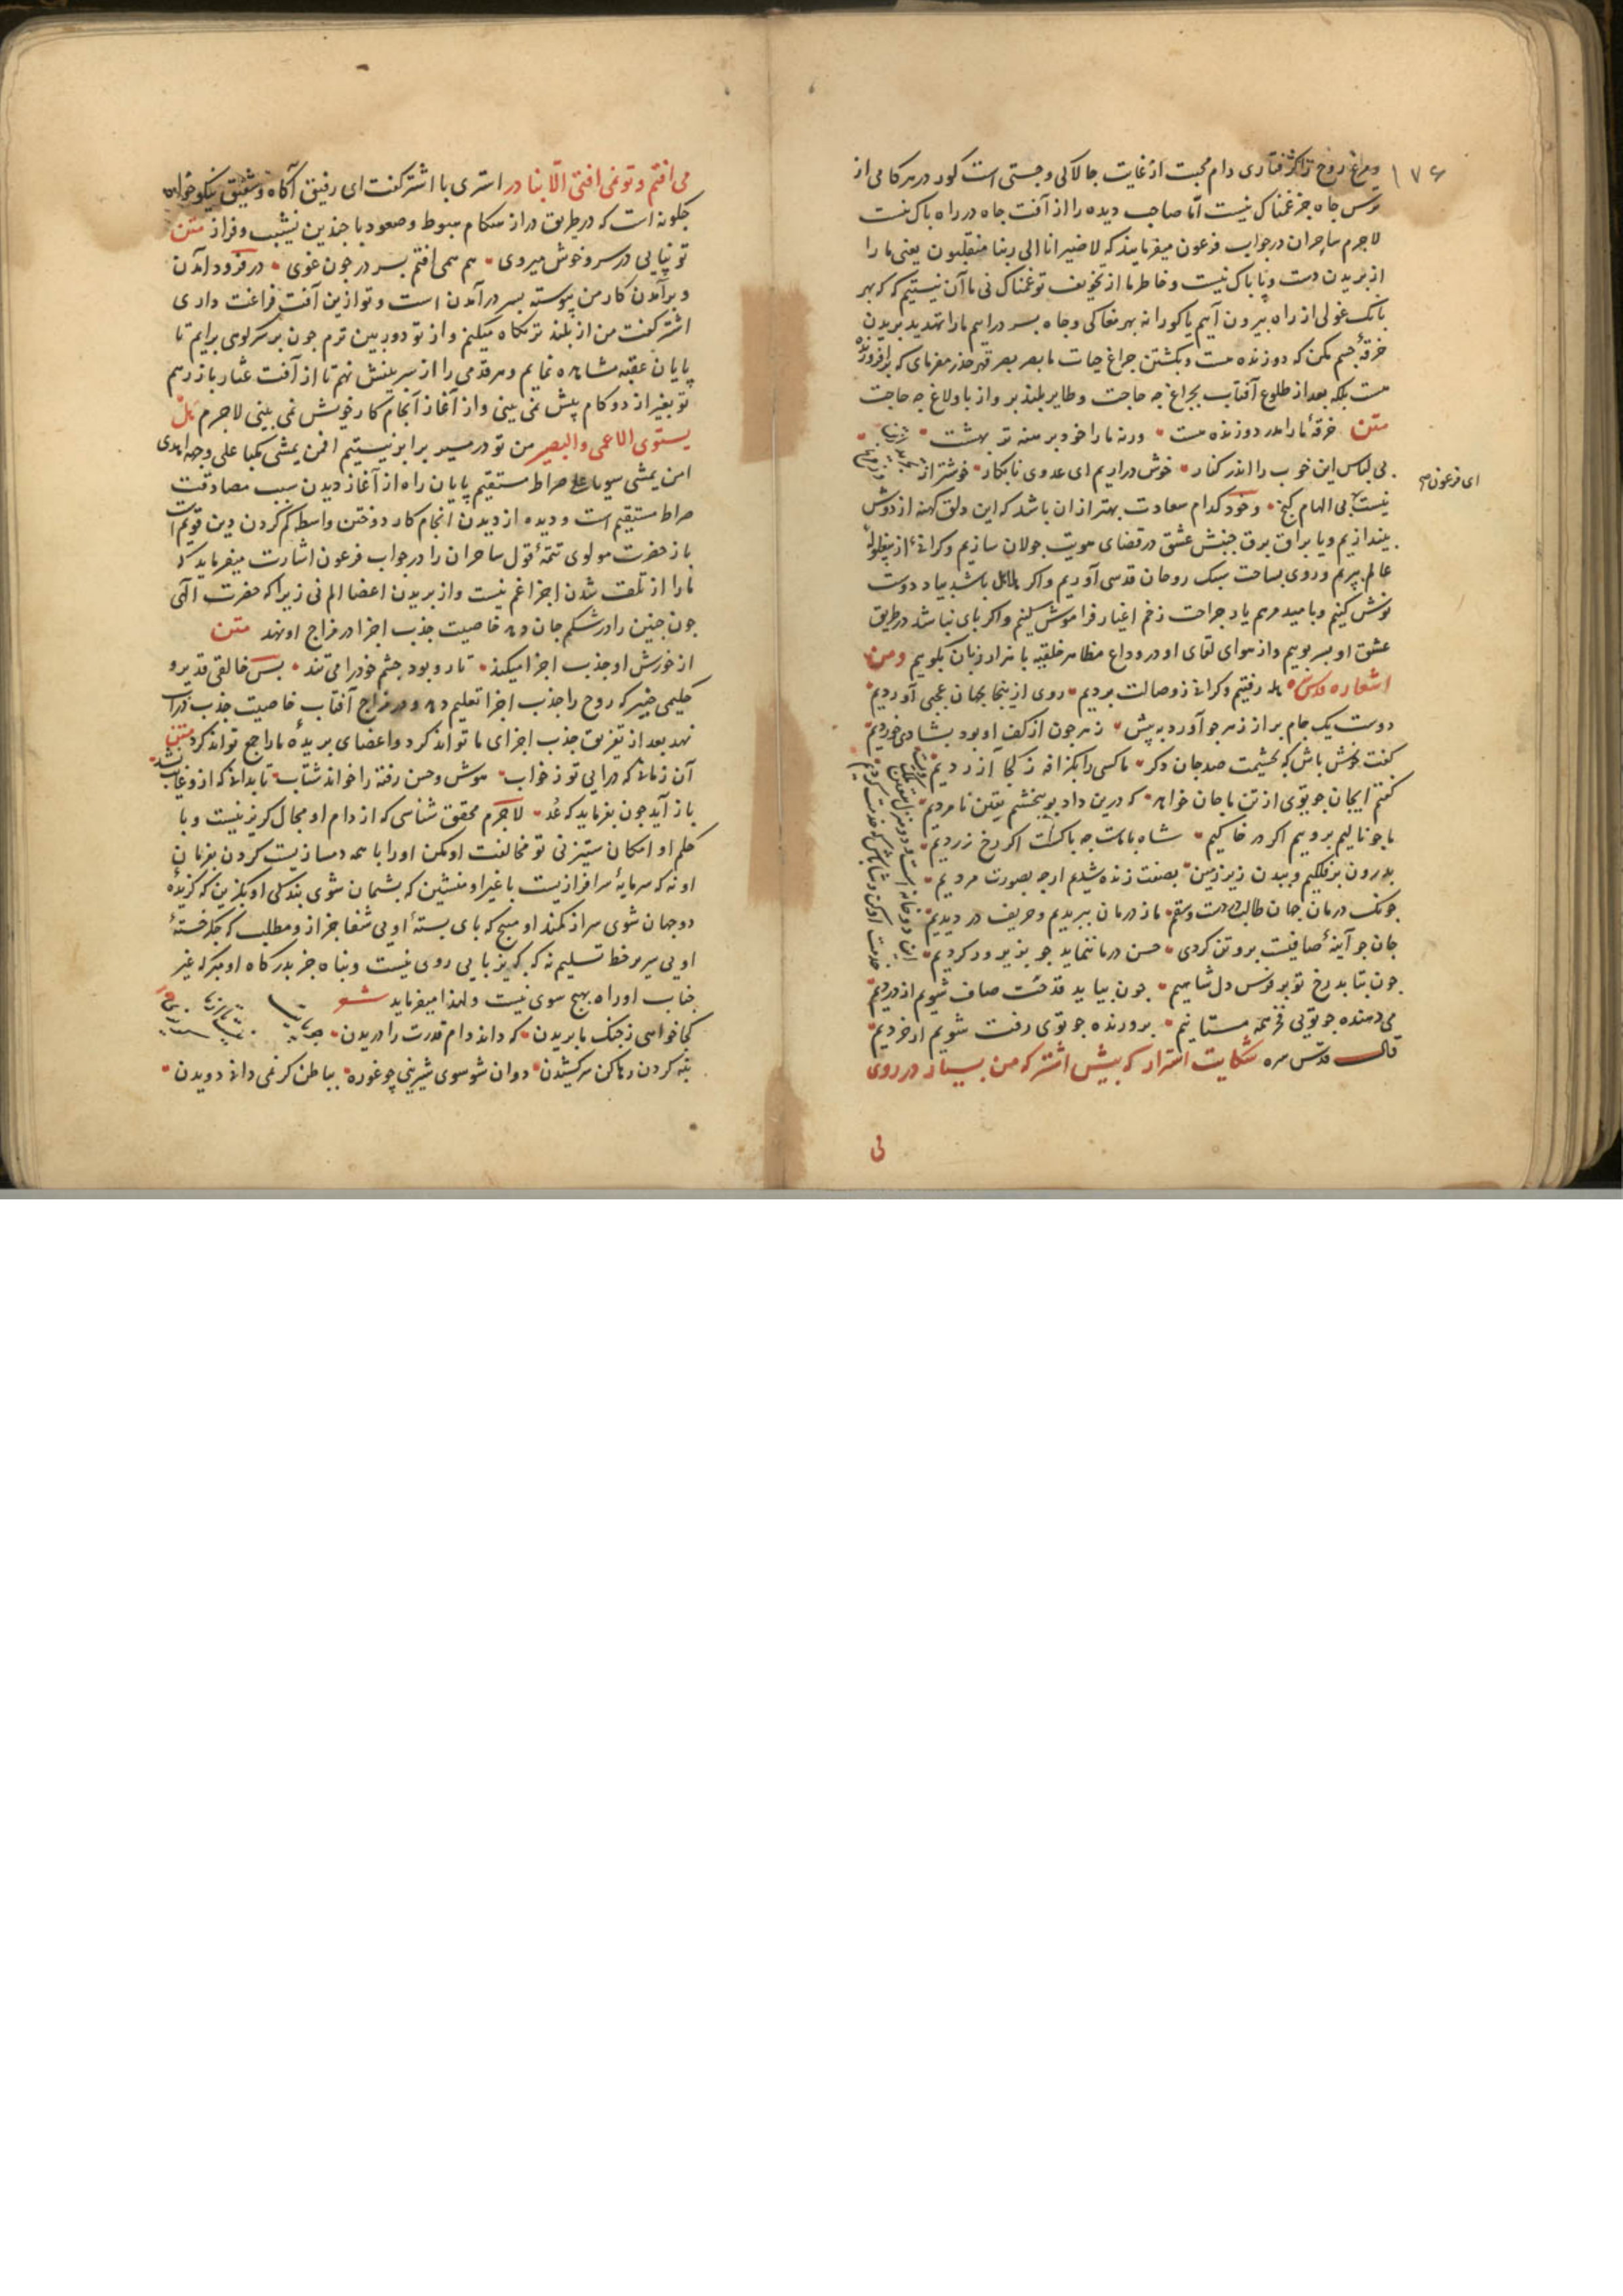 ۱۷۶
و مرغ روح را گرفتاری دام محبت از غایت چالاکی و چستی است کور در هر کامی از
ترس چاه جز غمناک نیست اما صاحب دیده را از آفت چاه در راه باک نیست
لاجرم ساحران در جواب فرعون میفرمایند که لا ضیر انا الی ربنا منقلبون یعنی ما را
از بریدن دست و پا باک نیست و خاطر ما از تخویف تو غمناک نی ما آن نیستیم که بهر
بانک غولی از راه بیرون آییم یا کورانه بهر مغاکی و چاه بسر در اییم ما را تهدید بریدن
خرقهٔ جسم مکن که دوزنده هست و بکشتن چراغ حیات ما بصرصر قهر حذر مفرمای که برافروزنده
هست بلکه بعد از طلوع آفتاب بچراغ چه حاجت و طایر بلند پرواز با ولاغ چه حاجت
متن خرقهٔ ما را بدر دوزنده هست ورنه ما را خود برهنه تر بهشت
بی لباس این خوب را اندر کنار خوش در اریم ای عدوی نابکار خوشتر از
ای فرعون
نیست بی الهام کیج و خود کدام سعادت بهتر از ان باشد که این دلق کهنه از دوش
بیندازیم و با براق برق جنبش عشق در فضای هویت جولان سازیم و کرانه از بیغوله
عالم بپریم و روی بساحت سبک روحان قدسی آوریم و اکر باشد بیاد دوست
نوش کنیم و بامید مرهم یاد جراحت زخم اغیار فراموش کنیم و اکر پای نباشد در طریق
عشق او بسر پوییم و از هوای لقای او در وداع مظاهر خلقیه با هزار زبان بکوییم ومن
اشعاره قدس سره ما رفتیم و کرانی ز وصالت بردیم روی از ینجا بجهان عجبی آوردیم
دوست یک جام پر از زهر چو آورد به پیش زهر چون از کف او بود بشادی خوردیم
کفت خوش باش که بخشیمت صد جان دکر ما کسی را بکزافه ز کجا آزردیم
کفتم ای جان چو توی از تن ما جان خواهد که درین داد بپیچیم یقین نامردیم
ما چو نالیم برویم اکر در خاکیم شاه با ماست چه باکست اکر رخ زردیم
بدرون بر فلکیم و ببدن زیر زمین بصفت زنده شدیم ارچه بصورت مردیم
چونک درمان جان طالب دردست و سقم ما ز درمان ببریدیم و حریف دردیم
جان چو آینهٔ صافیست برو تن کردی حسن در ما ننماید چو بزیر کردیم
این دو خانه است دو منزل
خدمت نو کن و شاباش که خدمت کردیم
چون بتابد رخ تو بر فرس دل شاهیم چون بیاید قدحت صاف شویم از دردیم
می دهنده چو تویی فخر همه مستانیم پرورنده چو توی زفت شویم ار خردیم
قال قدس سره شکایت استر که پیش اشتر که من بسیار در روی
می
می افتم و تو نمی افتی الا بنادر استری با اشتر کفت ای رفیق آکاه و شفیق نیکو خواه
چکونه است که در طریق دراز هنکام هبوط و صعود با چندین نشیب و فراز متن
تو نیایی در سر و خوش میروی من همی افتم بسر در چون غوی در فرود آمدن
و برآمدن کار من پیوسته بسر درآمدن است و تو ازین آفت فراغت داری
اشتر کفت من از بلند تر نکاه میکنم و از تو دوربین ترم چون بر سر کوی برایم تا
پایان عقبه مشاهده نمایم و هر قدمی را از سر بینش نهم تا از آفت عثار باز رهم
تو بغیر از دو کام پیش نمی بینی و از آغاز انجام کار خویش نمی بینی لاجرم هل
یستوی الاعمی والبصیر من تو در مسیر برابر نیستیم افمن یمشی مکبا علی وجهه اهدی
امن یمشی سویا علی صراط مستقیم پایان راه از آغاز دیدن سبب مصادفت
صراط مستقیم است و دیده از دیدن انجام کار دوختن واسطه کم کردن دین قویم است
باز حضرت مولوی تتمهٔ قول ساحران را در جواب فرعون اشارت میفرماید که
ما را از تلف شدن اجزا غم نیست و از بریدن اعضا الم نی زیرا که حضرت الهی
چون جنین را در شکم جان دهد خاصیت جذب اجزا در مزاج او نهد متن
از خورش او جذب اجزا میکند تار و پود جسم خود را می تند پس خالقی قدیر و
حکیمی خبیر که روح را جذب اجزا تعلیم دهد و در مزاج آفتاب خاصیت جذب ذرات
نهد بعد از تفریق جذب اجزای ما تواند کرد و اعضای بریدهٔ ما راجع تواند کرد متن
آن زمانی که درایی تو ز خواب هوش و حس رفته را خواند شتاب تا بدانی که ازو غایب نشد
باز آید چون بفرماید که عد لاجرم محقق شناسی که از دام او مجال کریز نیست و با
حکم او امکان ستیز نی تو مخالفت او مکن او را با همه دمسازیست کردن بفرمان
او نه که سرمایهٔ سرافرازیست با غیر او منشین که پشیمان شوی بندکی او بکزین که کزیدهٔ
دو جهان شوی سر از کمند او مپیچ که پای بستهٔ او یی شفا جز از و مطلب که جکر خستهٔ
او یی سر بر خط تسلیم نه که کریز پایی روی نیست و پناه جز بدرکاه او مبر که غیر
جناب او راه بهیچ سوی نیست و لهذا میفرماید شعر
کجا خواهی ز چنک ما پریدن که داند دام قدرت را دریدن
بنه کردن رها کن سر کشیدن دوان شو سوی شیرینی چو غوره بباطن کر نمی دانی دویدن